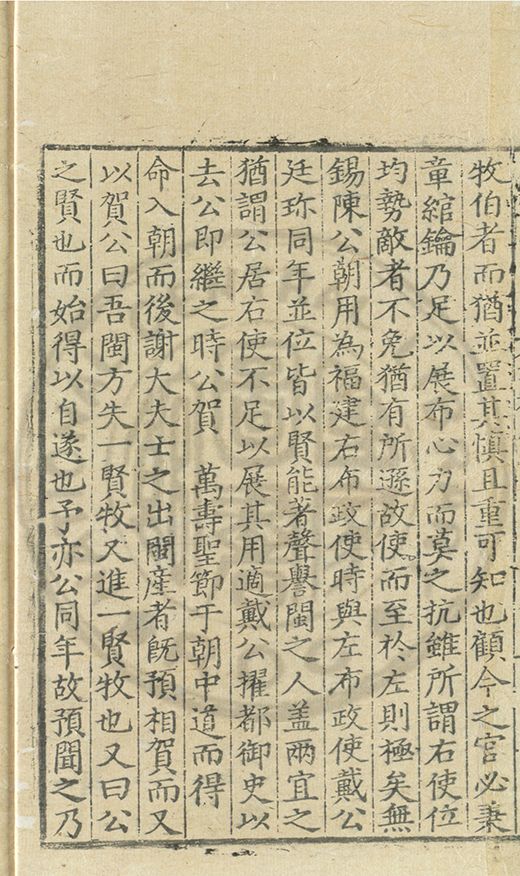 牧伯者而猶並置其慎且重可知也顧今之官必秉
章綰鑰乃足以展布心力而莫之抗雖所謂右使位
均勢敵者不免猶有所遜故使而至於左則極矣無
錫陳公朝用為福建右布政使時與左布政使戴公
廷珍同年並位皆以賢能著聲譽閩之人盖兩宜之
猶謂公居右使不足以展其用適戴公擢都御史以
去公即繼之時公賀　萬壽聖節于朝中道而得
命入朝而後謝大夫士之出閩産者既預相賀而又
以賀公曰吾閩方失一賢牧又進一賢牧也又曰公
之賢也而始得以自遂也予亦公同年故預聞之乃